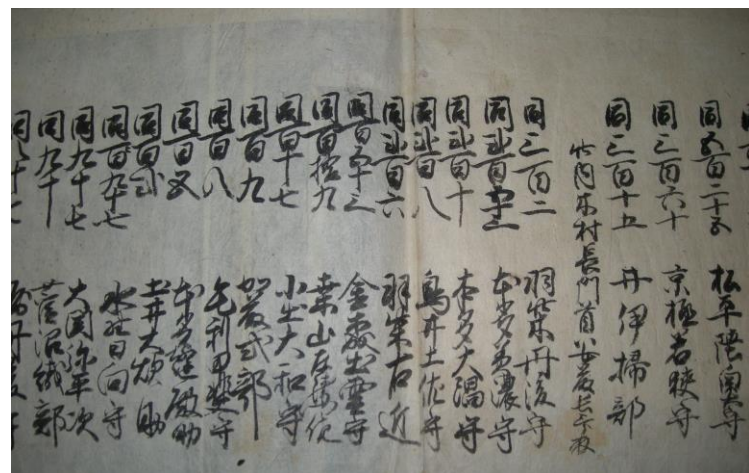 同五百二十五 松平陸奥守
同三百六十 京極若狭守
同三百十五 井伊掃部
木村長門首
同三百二 羽柴丹後守
同弐百五十三 本多美濃守
同弐百十 本多大隅守
同弐百八 鳥井土佐守
同弐百六 羽柴右近
同百五十三 金森出雲守
同百拾九 桑山左衛門佐
同百十七 小出大和守
同百九 加藤式部
同百八 毛利甲斐守
同百五 本多縫殿助
同百弐 土井大炊助
同百九十七 水野日向守
同九十七 大関弥平次
同九十 菅沼織部